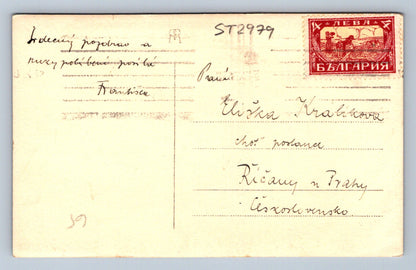 ST2979
Srdečný pozdrav a
ruky políbení posílá
Františka
1 ЛЕВА 1
БЪЛГАРИЯ
Paní
Eliška Králíková
choť poslance
Říčany u Prahy
Československo
59